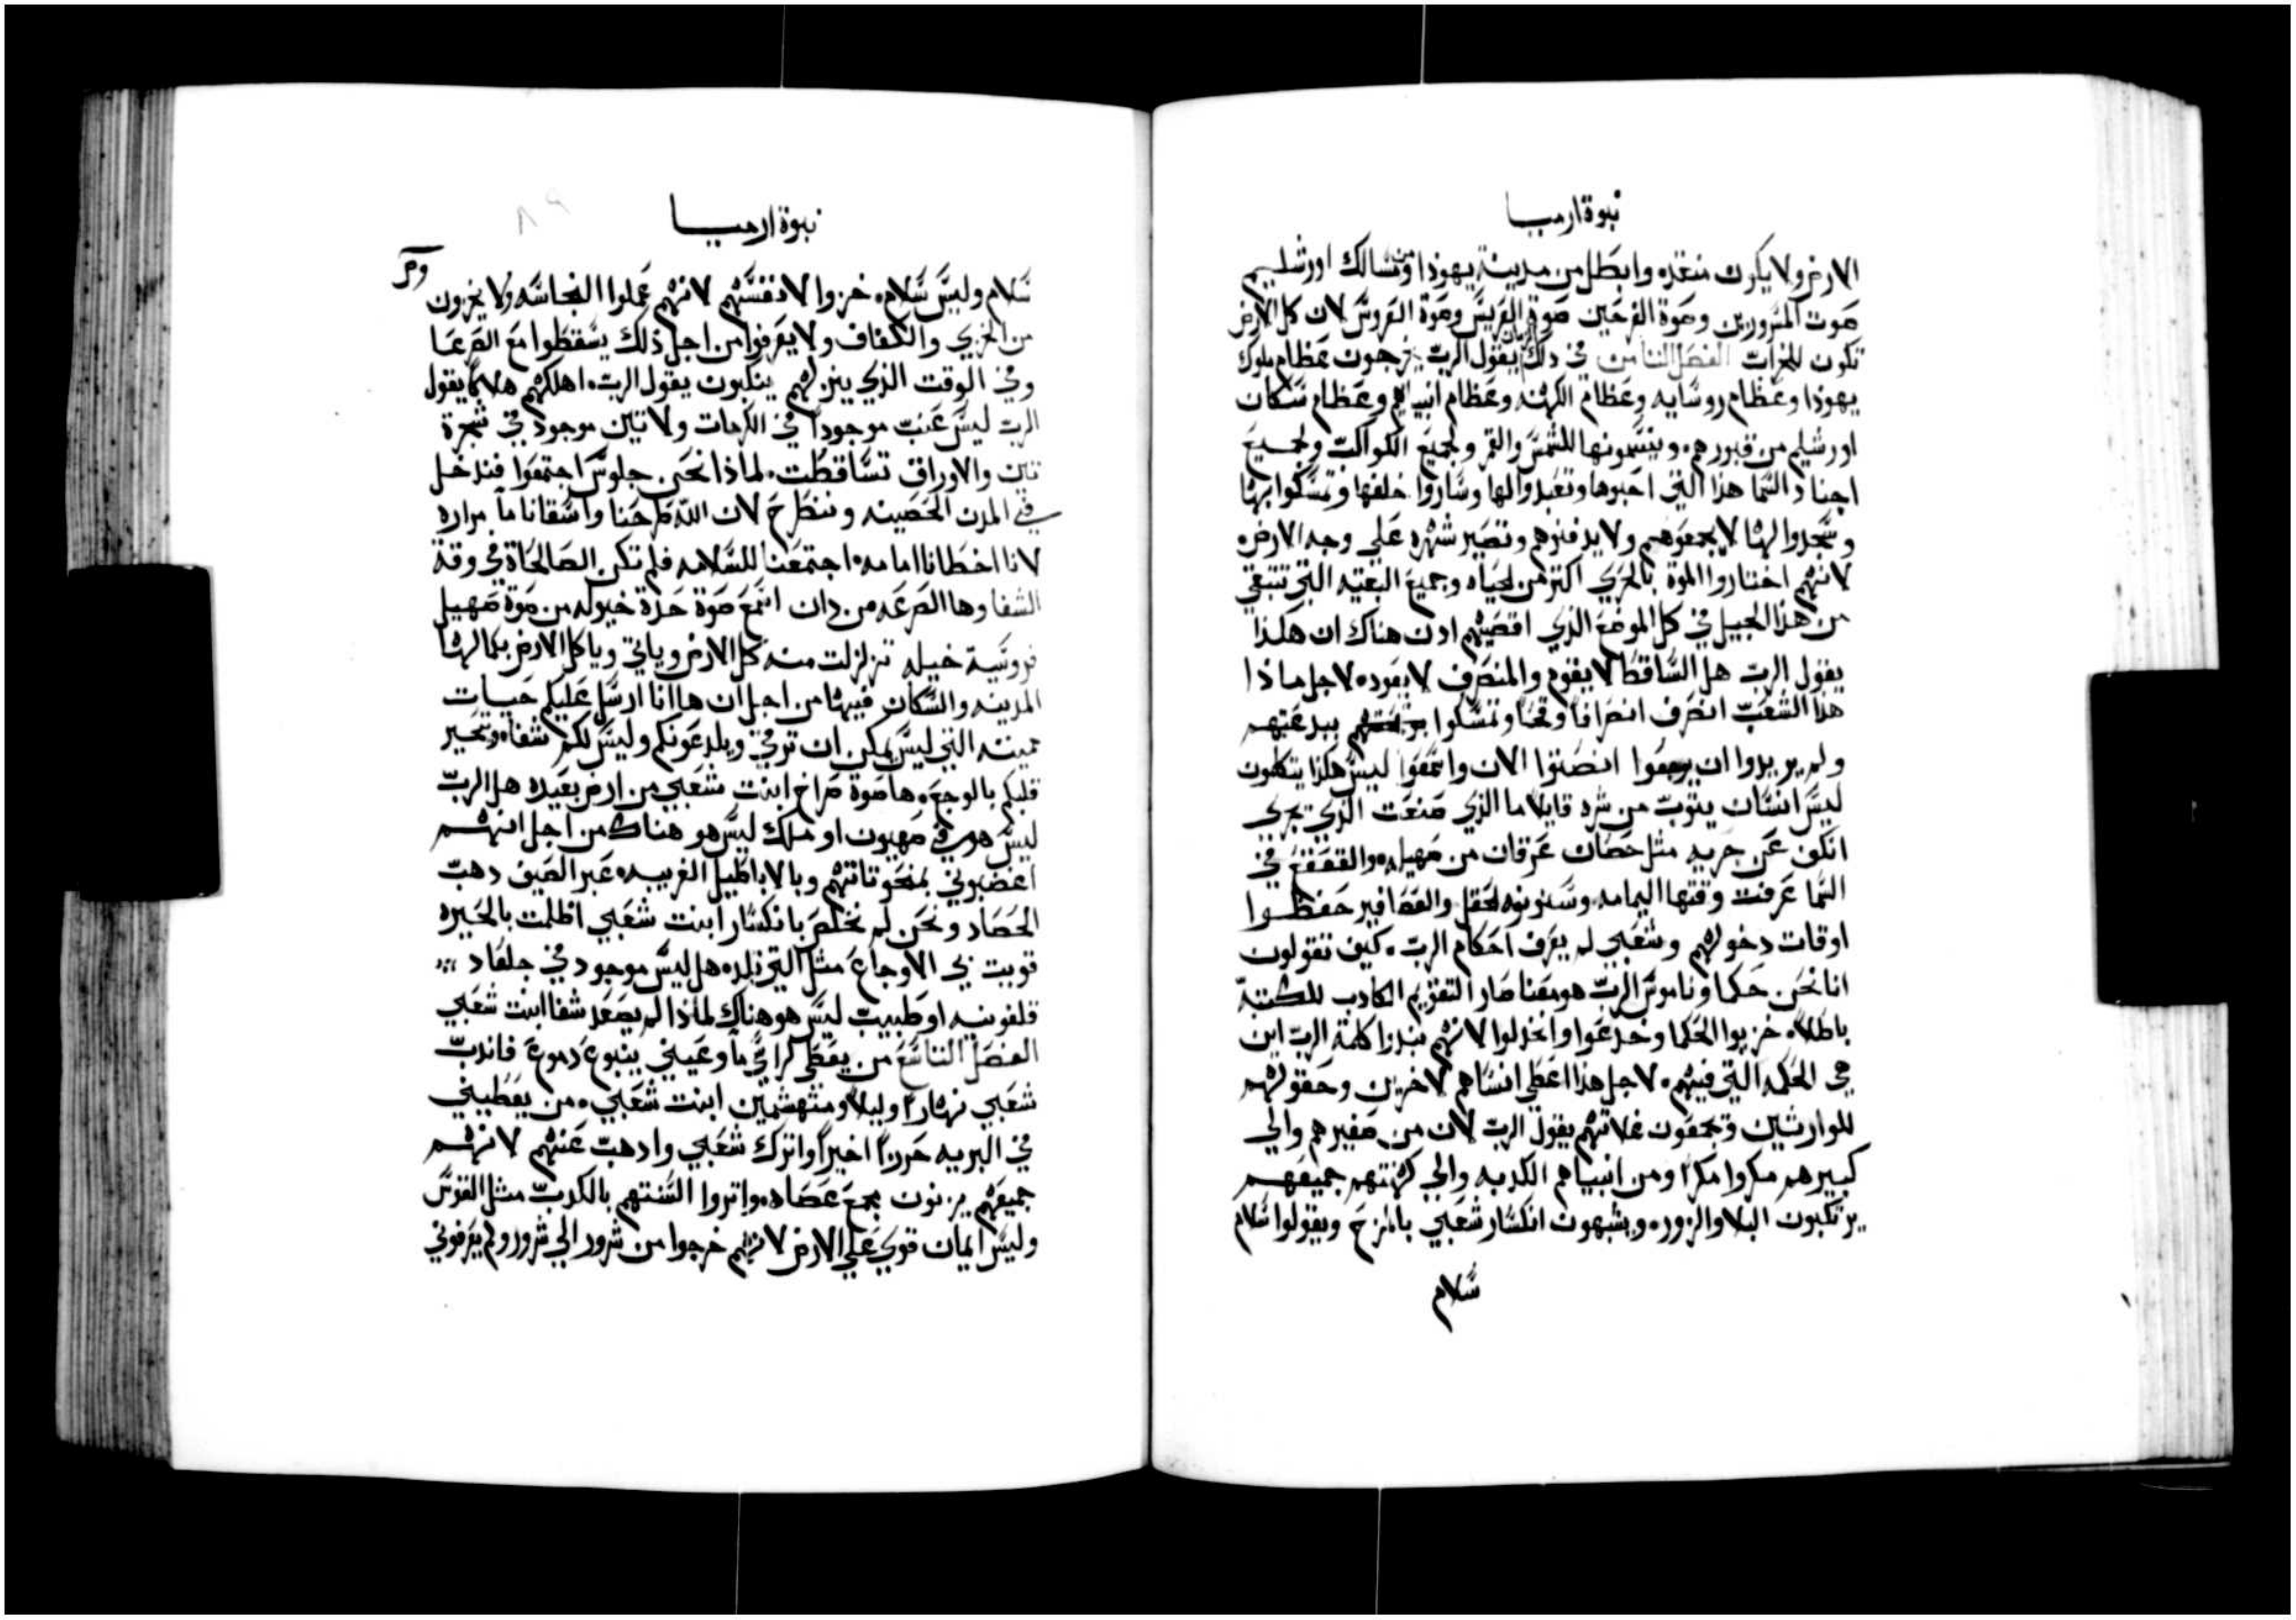 نبوة ارميا
الارض ولا يكون منقذه وابطل من مدينة يهوذا ومن مسالك اورشليم
صوت المسرورين وصوة الفرحين صوة العريس وصوة العروس لان كل الارض
تكون للخراب الفصل الثامن في ذلك الزمان يقول الرب يخرجون عظام ملوك
يهوذا وعظام روسايه وعظام الكهنه وعظام انبياهم وعظام سكان
اورشليم من قبورهم وينسمونها للشمس والقمر ولجميع الكواكب ولجميع
اجناد السما هذا التي احبوها وتعبدوا لها وساروا خلفها وتمسكوا بها
وسجدوا لها لا يجمعوهم ولا يدفنوهم وتصير شهره علي وجه الارض
لانهم اختاروا الموة بالحري اكثر من الحياه وجميع البقيه التي تتبقي
من هذا الجيل في كل الموضع الذي اقصيهم اذن هناك ان هكذا
يقول الرب هل الساقط لا يقوم والمنصرف لا يعوده لاجل ماذا
هذا الشعب انصرف انصرافاً وقحاً وتمسكوا ببدعتهم
ولم يريدوا ان يرجعوا انصتوا الان واسمعوا ليس هكذا يتكلمون
ليس انسان يتوب من شره قايلاً ما الذي صنعت الذي يجري
انكف عن جريه مثل حصان عرقان من صهيله والقفقف في
السما عرفت وقتها اليمامه وسنونوة الحقل والعصافير حفظوا
اوقات دخولهم وشعبي لم يعرف احكام الرب كيف تقولون
انا نحن حكما وناموس الرب هو معنا صار التقويم الكادب للكتبة
باطلاً خزيوا الحكما وخدعوا وانخدلوا لانهم نبدوا كلمة الرب اين
هي الحكمه التي فيهم لاجل هذا اعطي انساهم لاخرين وحقولهم
للوارثين ويجمعون غلاتهم يقول الرب لان من صغيرهم والي
كبيرهم مكروا مكراً ومن انبياهم الكدبه والي كهنتهم جميعهم
يرتكبون البلا والزوره ويشبهون انكسار شعبي بالمزح ويقولوا سلام
سلام
نبوة ارميا
٨٩
سلام وليس سلام خزوا لانفسهم لانهم عملوا النجاسه ولا يخزون
من الخزي والكفاف ولا يعرفوا من اجل ذلك يسقطوا مع الصرعا
وفي الوقت الذي ينزلهم ينكبون يقول الرب اهلكهم هلاكاً يقول
الرب ليس عنب موجوداً في الكرمات ولا تين موجود في شجرة
تين والاوراق تساقطت لماذا نحن جلوس اجتمعوا فندخل
في المدن الحصينه وننطرح لان الله طرحنا واسقانا ما مراره
لانا اخطانا امامه اجتمعنا للسلامه فلم تكن الصالحاة في وقة
الشفا وها الصرعه من دان اسمع صوة حدة خيوله من صوة صهيل
فروسية خيله تزلزلت منه كل الارض وياتي وياكل الارض بكمالها
المدينه والسكان فيها من اجل ان هاانا ارسل عليكم حيات
مميته التي ليس يمكن ان ترقي ويلدعونكم وليس لكم شفاه وتحير
قلبكم بالوجع وها صوة صراخ ابنت شعبي من ارض بعيده هل الرب
ليس هو في صهيون او ملك ليس هو هناك من اجل انهم
اغضبوني بمنحوتاتهم وبالاباطيل الغريبه عبر الصيف دهب
الحصاد ونحن لم نخلص بانكسار ابنت شعبي اظلمت بالحيره
قويت بي الاوجاع مثل التي تلده هل ليس موجود في جلعاد
قلفونيه او طبيب ليس هو هناك لماذا لم يصعد شفا ابنت شعبي
الفصل التاسع من يعطي لراسي ماً وعيني ينبوع دموع فاندب
شعبي نهاراً وليلاً ومتهشمين ابنت شعبي من يعطيني
في البريه حرزاً اخيراً واترك شعبي وادهب عنهم لانهم
جميعهم يزنون مجمع عصاه واتروا السنتهم بالكدب مثل القوس
وليس ايمان قوي علي الارض لانهم خرجوا من شرور الي شرور ولم يعرفوني